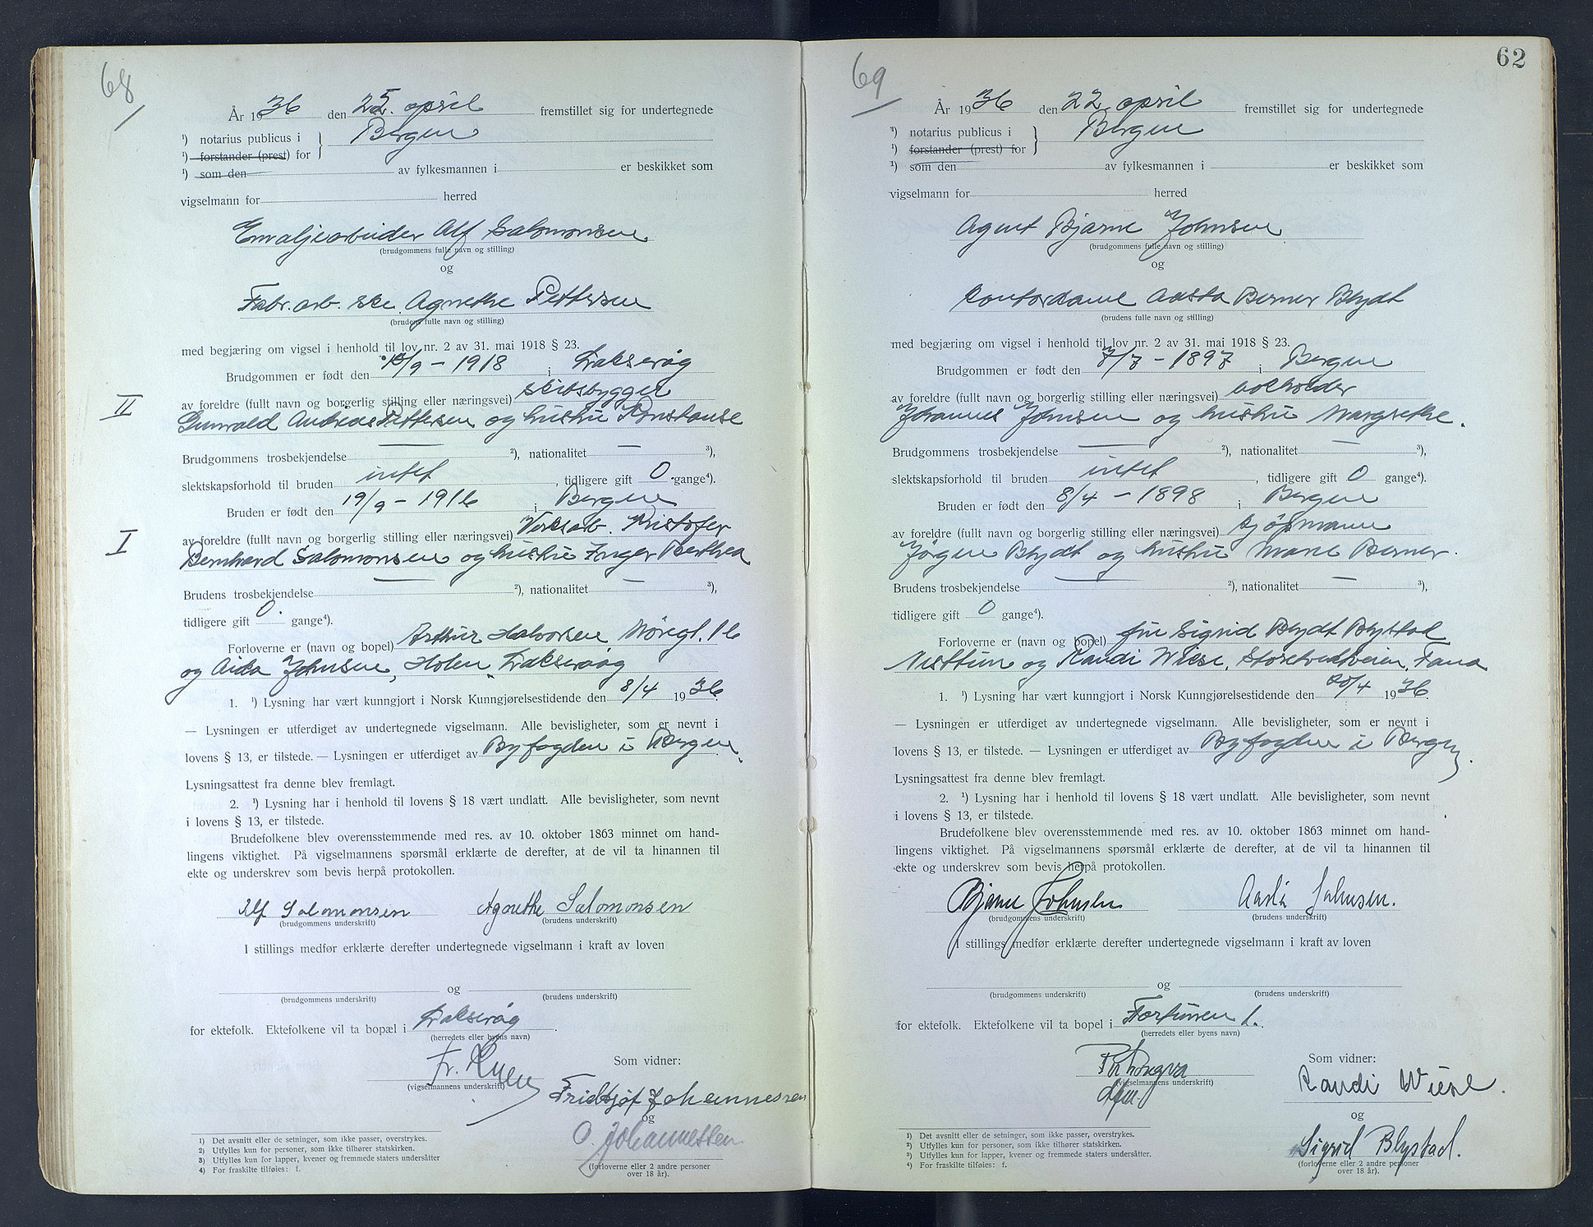 68
År 1936 den 25. april fremstillet sig for undertegnede
¹) notarius publicus i } Bergen
¹) forstander (prest) for
¹) som den av fylkesmannen i er beskikket som
vigselmann for herred
Emaljearbeider Alf Salomonsen
(brudgommens fulle navn og stilling)
og
Fabr. arb. ske. Agnethe Pettersen
(brudens fulle navn og stilling)
med begjæring om vigsel i henhold til lov nr. 2 av 31. mai 1918 § 23.
Brudgommen er født den /9 - 1918 i Laksevåg
av foreldre (fullt navn og borgerlig stilling eller næringsvei) skibsbygger
II Gunvald Andreas Pettersen og hustru Konstanse
Brudgommens trosbekjendelse — ²), nationalitet — ³),
slektskapsforhold til bruden intet, tidligere gift 0 gange⁴).
Bruden er født den 19/9 - 1916 i Bergen
av foreldre (fullt navn og borgerlig stilling eller næringsvei) Verksarb. Kristofer
I Bernhard Salomonsen og hustru Inger Berthea
Brudens trosbekjendelse — ²), nationalitet — ³),
tidligere gift 0. gange⁴).
Forloverne er (navn og bopel) Arthur Halvorsen Nøregt. 16
og Aida Johnsen, "Holen" Laksevåg
1. ¹) Lysning har vært kunngjort i Norsk Kunngjørelsestidende den 8/4 1936.
— Lysningen er utferdiget av undertegnede vigselmann. Alle bevisligheter, som er nevnt i
lovens § 13, er tilstede. — Lysningen er utferdiget av Byfogden i Bergen.
Lysningsattest fra denne blev fremlagt.
2. ¹) Lysning har i henhold til lovens § 18 vært undlatt. Alle bevisligheter, som nevnt
i lovens § 13, er tilstede.
Brudefolkene blev overensstemmende med res. av 10. oktober 1863 minnet om hand-
lingens viktighet. På vigselmannens spørsmål erklærte de derefter, at de vil ta hinannen til
ekte og underskrev som bevis herpå protokollen.
Alf Salomonsen Agnethe Salomonsen
(brudgommens underskrift) (brudens underskrift)
I stillings medfør erklærte derefter undertegnede vigselmann i kraft av loven
og
(brudgommens underskrift) (brudens underskrift)
for ektefolk. Ektefolkene vil ta bopæl i Laksevåg.
(herredets eller byens navn)
Som vidner:
Fr.
(vigselmannens underskrift)
Fridtjof Johannessen
og
O. Johannessen
(forloverne eller 2 andre personer
over 18 år).
1) Det avsnitt eller de setninger, som ikke passer, overstrykes.
2) Utfylles kun for personer, som ikke tilhører statskirken.
3) Utfylles kun for lapper, kvener og fremmede staters undersåtter
4) For fraskilte tilføies: f.
62
69
År 1936 den 22. april fremstillet sig for undertegnede
¹) notarius publicus i } Bergen
¹) forstander (prest) for
¹) som den av fylkesmannen i er beskikket som
vigselmann for herred
Agent Bjarne Johnsen
(brudgommens fulle navn og stilling)
og
Kontordame Aasta Berner Blydt
(brudens fulle navn og stilling)
med begjæring om vigsel i henhold til lov nr. 2 av 31. mai 1918 § 23.
Brudgommen er født den 7/7 - 1897 i Bergen
av foreldre (fullt navn og borgerlig stilling eller næringsvei) bokholder
Johannes Johnsen og hustru Margrethe.
Brudgommens trosbekjendelse — ²), nationalitet — ³),
slektskapsforhold til bruden intet, tidligere gift 0 gange⁴).
Bruden er født den 8/4 - 1898 i Bergen
av foreldre (fullt navn og borgerlig stilling eller næringsvei) kjøpmann
Jørgen Blydt og hustru Marie Berner.
Brudens trosbekjendelse — ²), nationalitet — ³),
tidligere gift 0 gange⁴).
Forloverne er (navn og bopel) fru Sigrid Blydt Blystad
Nesttun og Randi Wiese, Storetveitveien, Fana
1. ¹) Lysning har vært kunngjort i Norsk Kunngjørelsestidende den 20/4 1936.
— Lysningen er utferdiget av undertegnede vigselmann. Alle bevisligheter, som er nevnt i
lovens § 13, er tilstede. — Lysningen er utferdiget av Byfogden i Bergen.
Lysningsattest fra denne blev fremlagt.
2. ¹) Lysning har i henhold til lovens § 18 vært undlatt. Alle bevisligheter, som nevnt
i lovens § 13, er tilstede.
Brudefolkene blev overensstemmende med res. av 10. oktober 1863 minnet om hand-
lingens viktighet. På vigselmannens spørsmål erklærte de derefter, at de vil ta hinannen til
ekte og underskrev som bevis herpå protokollen.
Bjarne Johnsen Aasta Johnsen.
(brudgommens underskrift) (brudens underskrift)
I stillings medfør erklærte derefter undertegnede vigselmann i kraft av loven
og
(brudgommens underskrift) (brudens underskrift)
for ektefolk. Ektefolkene vil ta bopel i Fortunen 1.
(herredets eller byens navn)
Som vidner:
(vigselmannens underskrift)
Randi Wiese.
og
Sigrid Blystad.
(forloverne eller 2 andre personer
over 18 år).
¹) Det avsnitt eller de setninger, som ikke passer, overstrykes.
²) Utfylles kun for personer, som ikke tilhører statskirken.
³) Utfylles kun for lapper, kvener og fremmede staters undersåtter.
⁴) For fraskilte tilføies: f.